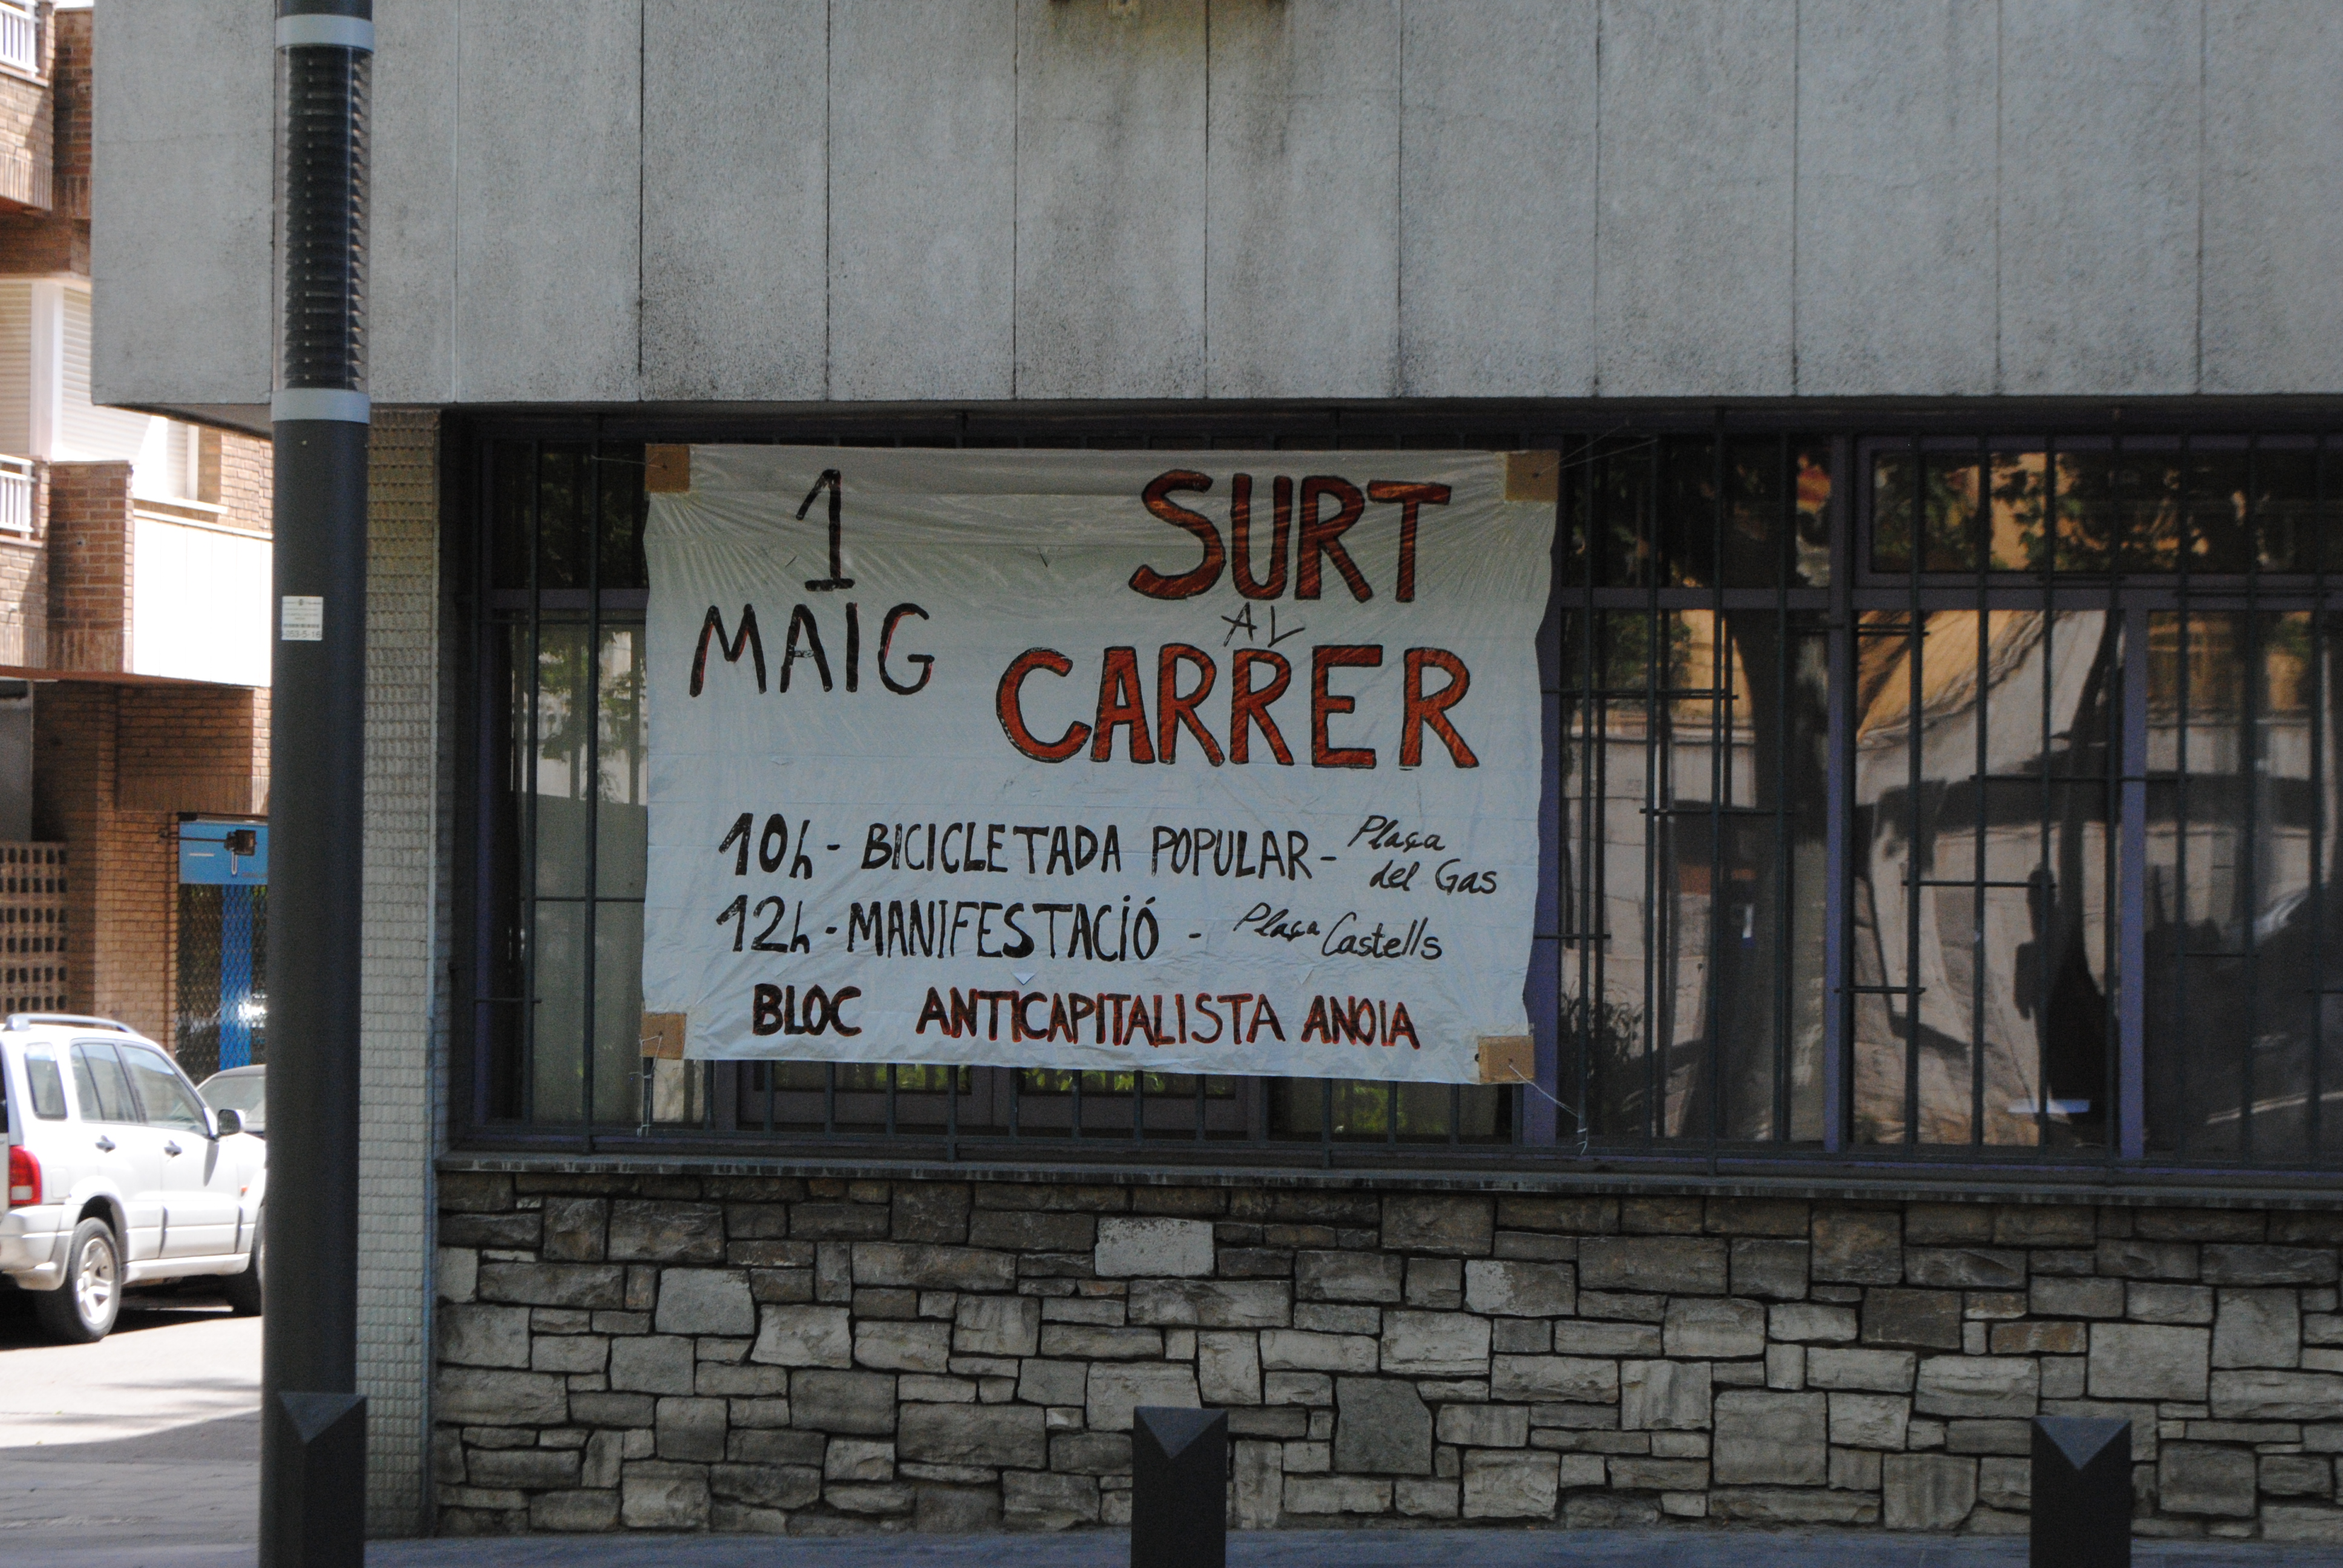 1
MAIG
SURT
AL
CARRER
10h - BICICLETADA POPULAR - Plaça del Gas
12h - MANIFESTACIÓ - Plaça Castells
BLOC ANTICAPITALISTA ANOIA